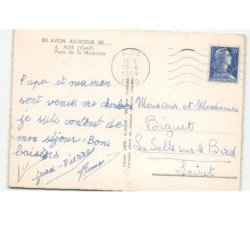 EN AVION AU-DESSUS DE...
6. ALES (Gard)
Place de la Maréchale
1959
Papa et maman
sont venus me chercher
je suis content de
mon séjour. Bons
baisers
Jean-Pierre
Monsieur et Mesdames
Biguet
La Selle sur le Bied
Loiret